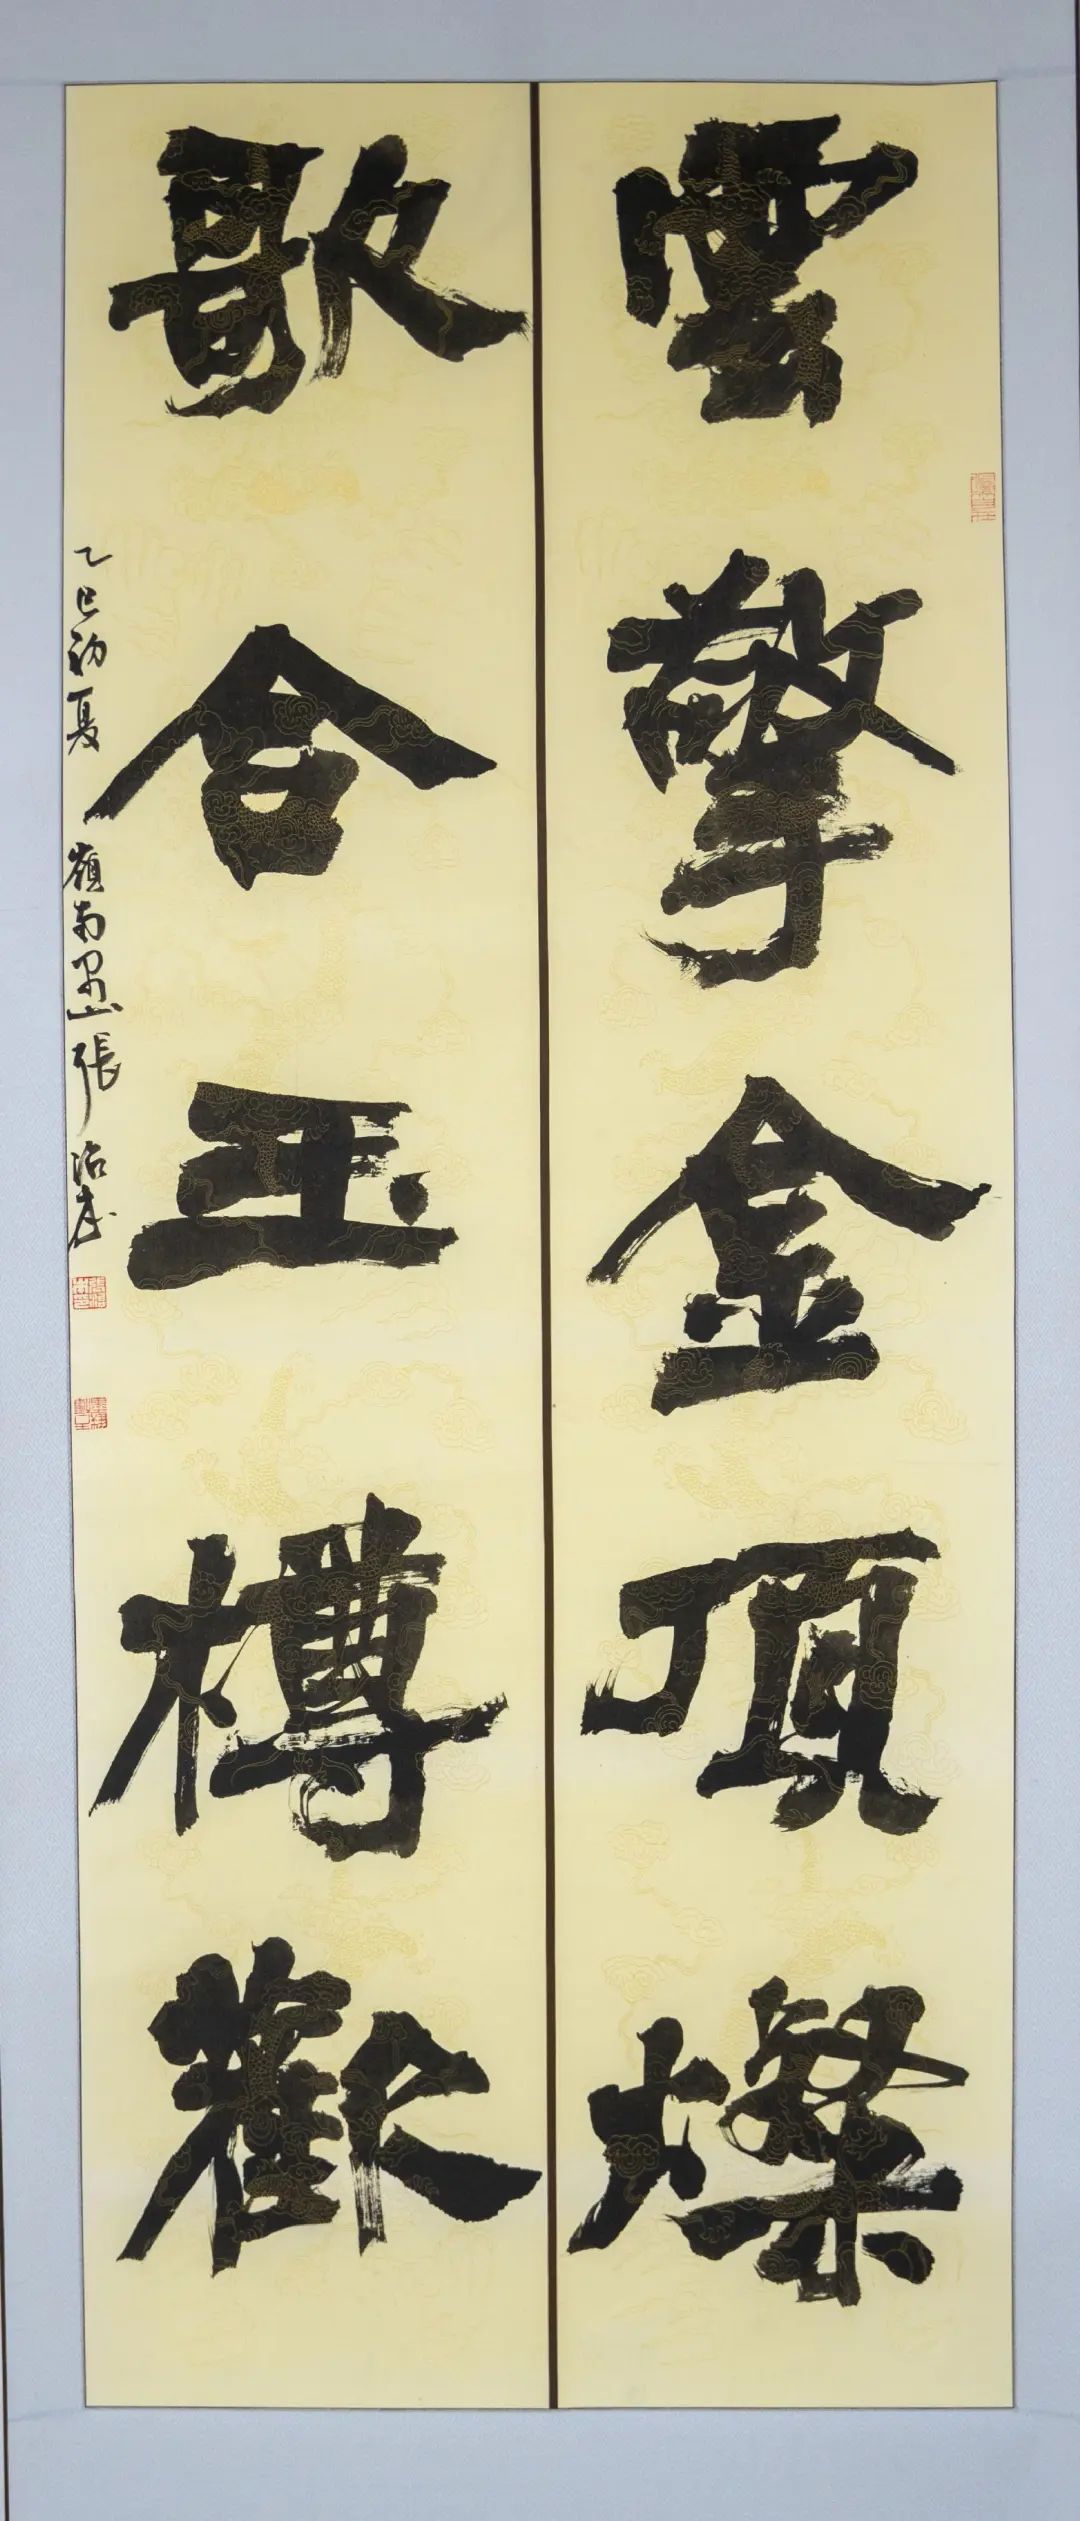 雲擎金頂燦
歌合玉樽歡
乙巳初夏 嶺南 張治安